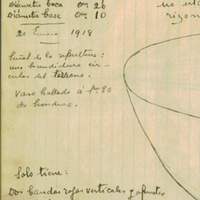 Diámetro boca 0m. 26
Diámetro base 0m. 10
21 Enero 1918
Señal de la sepultura:
una hendidura cir-
cular del terreno.
Vaso hallado á 1m.80
de hondura.
Solo tiene:
Dos bandas rojas verticales y opuestas
no ula